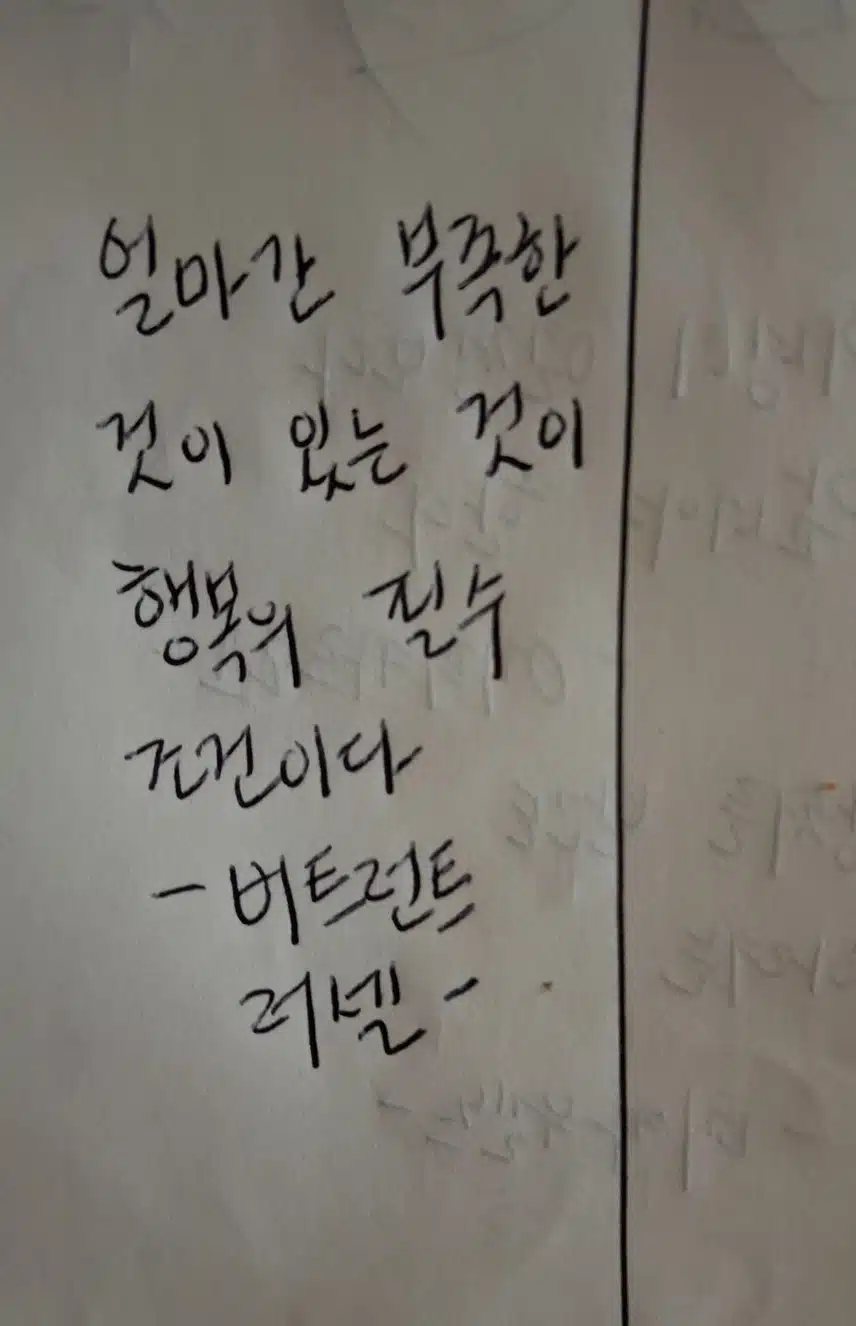 얼마간 부족한
것이 있는 것이
행복의 필수
조건이다
- 버트런트
러셀 -